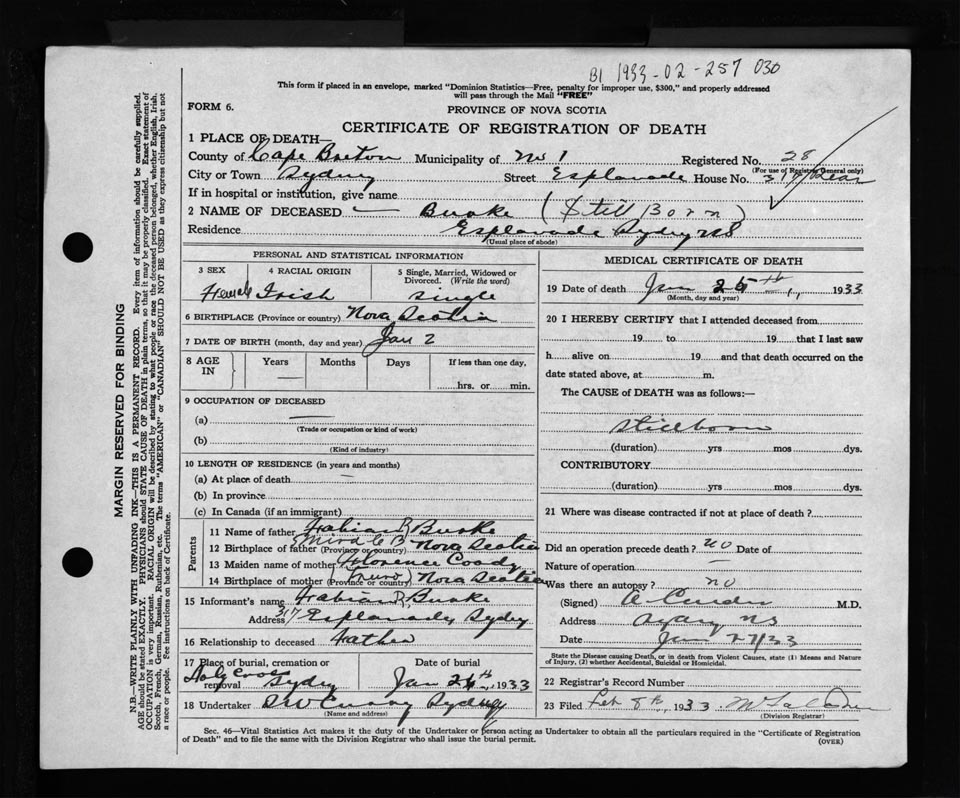 B1 1933-02-257 030
This form if placed in an envelope, marked "Dominion Statistics—Free, penalty for improper use, $300," and properly addressed
will pass through the Mail "FREE"
FORM 6.
PROVINCE OF NOVA SCOTIA
CERTIFICATE OF REGISTRATION OF DEATH
1 PLACE OF DEATH—
County of Cape Breton Municipality of No 1 Registered No. 28
(For use of Registrar General only)
City or Town Sydney Street Esplanade House No. 317 Rear
If in hospital or institution, give name
2 NAME OF DECEASED — Burke (Still Born)
Residence Esplanade Sydney NS
(Usual place of abode)
PERSONAL AND STATISTICAL INFORMATION
3 SEX 4 RACIAL ORIGIN 5 Single, Married, Widowed or Divorced. (Write the word)
Female Irish single
6 BIRTHPLACE (Province or country) Nova Scotia
7 DATE OF BIRTH (month, day and year) Jan 2
8 AGE IN Years Months Days If less than one day,
— hrs. or min.
9 OCCUPATION OF DECEASED
(a) —
(Trade or occupation or kind of work)
(b)
(Kind of industry)
10 LENGTH OF RESIDENCE (in years and months)
(a) At place of death —
(b) In province
(c) In Canada (if an immigrant)
Parents
11 Name of father Fabian Burke
12 Birthplace of father (Province or country) Nova Scotia
13 Maiden name of mother Florence Coady
14 Birthplace of mother (Province or country) (Truro) Nova Scotia
15 Informant's name Fabian Burke
Address 317 Esplanade, Sydney
16 Relationship to deceased Father
17 Place of burial, cremation or removal Holy Cross Sydney
Date of burial Jan 26th 1933
18 Undertaker Curry Sydney
(Name and address)
MEDICAL CERTIFICATE OF DEATH
19 Date of death Jan 25th, 1933
(Month, day and year)
20 I HEREBY CERTIFY that I attended deceased from
19 to 19 that I last saw
h alive on 19 and that death occurred on the
date stated above, at m.
The CAUSE OF DEATH was as follows:—
Stillborn
(duration) yrs mos dys.
CONTRIBUTORY
(duration) yrs mos dys.
21 Where was disease contracted if not at place of death?
Did an operation precede death? no Date of
Nature of operation —
Was there an autopsy? no
(Signed) M.D.
Address Sydney NS
Date Jan 27/33
State the Disease causing Death, or in death from Violent Causes, state (1) Means and Nature
of Injury, (2) whether Accidental, Suicidal or Homicidal.
22 Registrar's Record Number
23 Filed Feb 8th, 1933
(Division Registrar)
Sec. 46—Vital Statistics Act makes it the duty of the Undertaker or person acting as Undertaker to obtain all the particulars required in the "Certificate of Registration
of Death" and to file the same with the Division Registrar who shall issue the burial permit.
(OVER)
MARGIN RESERVED FOR BINDING
N.B.—WRITE PLAINLY WITH UNFADING INK—THIS IS A PERMANENT RECORD. Every item of information should be carefully supplied.
AGE should be stated EXACTLY. PHYSICIANS should STATE CAUSE OF DEATH in plain terms, so that it may be properly classified. Exact statement of
OCCUPATION is very important. RACIAL ORIGIN will be described by stating to what people or race the deceased person belonged, whether English, Irish,
Scotch, French, German, Russian, Ruthenian, etc. The terms "AMERICAN" or "CANADIAN" SHOULD NOT BE USED as they express citizenship but not
a race or people. See instructions on back of Certificate.